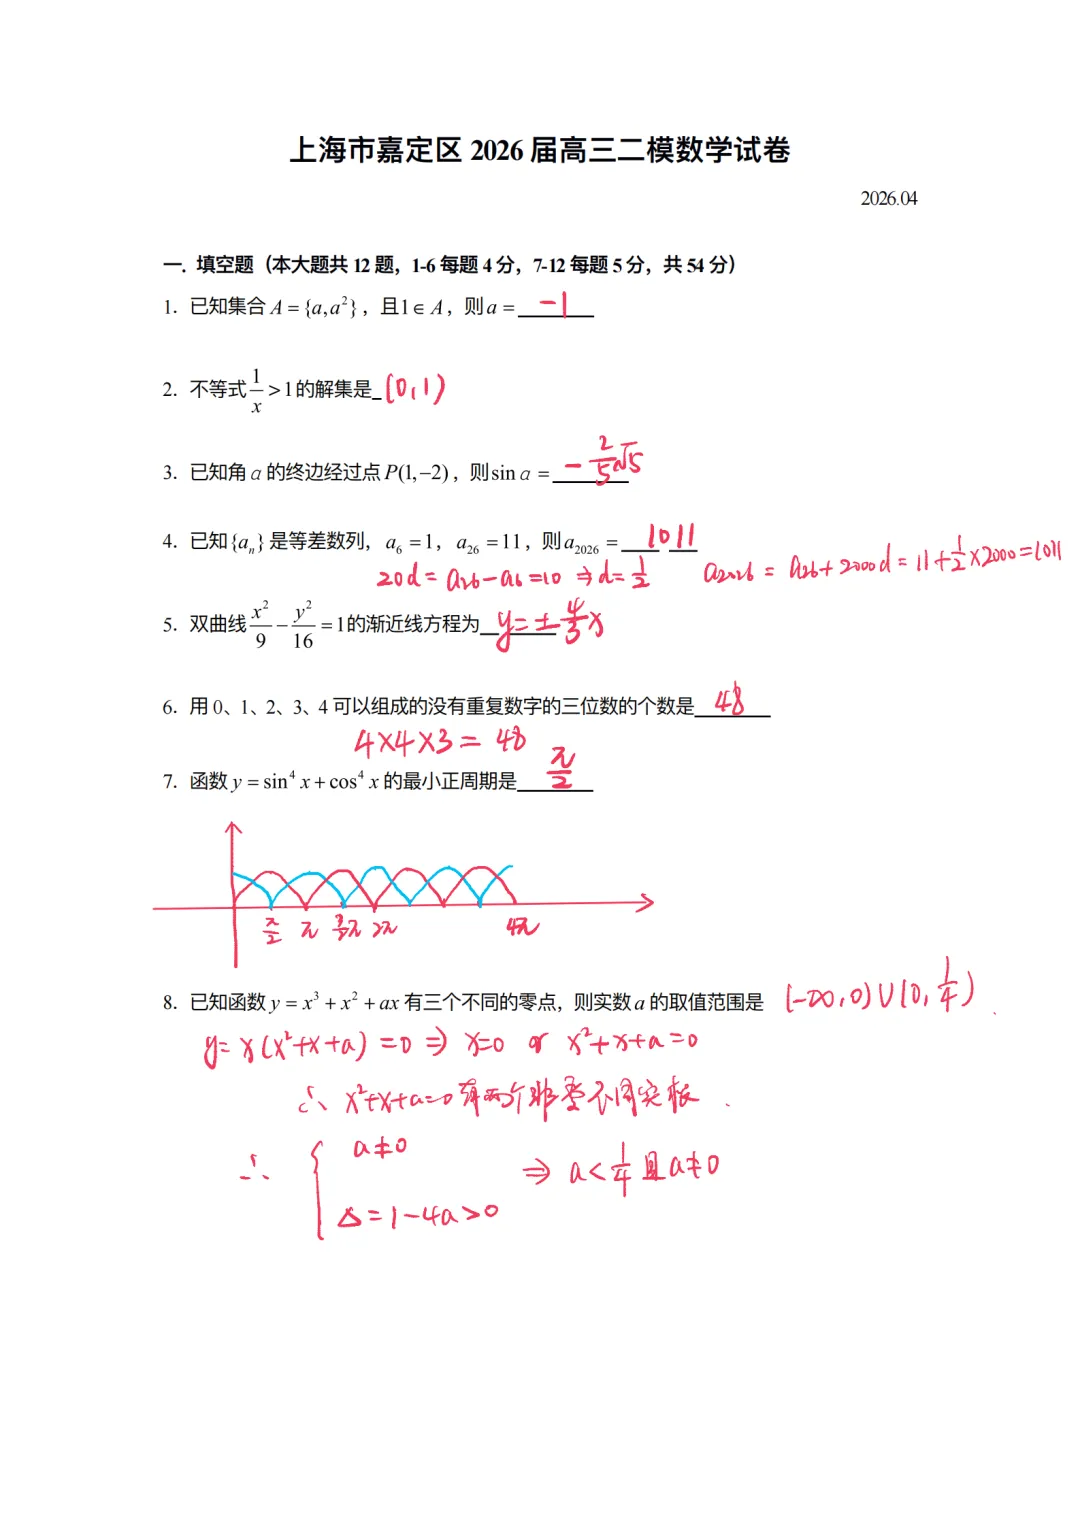 上海市嘉定区 2026 届高三二模数学试卷
2026.04
一. 填空题（本大题共 12 题，1-6 每题 4 分，7-12 每题 5 分，共 54 分）
1. 已知集合 A = {a, a²}，且1 ∈ A，则 a = -1
2. 不等式 1/x > 1 的解集是 (0,1)
3. 已知角 α 的终边经过点 P(1,−2)，则 sin α = -2/5√5
4. 已知{aₙ} 是等差数列，a₆ = 1，a₂₆ = 11，则 a₂₀₂₆ = 1011
20d = a₂₆ - a₆ = 10 ⇒ d = 1/2
a₂₀₂₆ = a₂₆ + 2000d = 11 + 1/2 × 2000 = 1011
5. 双曲线 x²/9 − y²/16 = 1 的渐近线方程为 y = ±4/3 x
6. 用 0、1、2、3、4 可以组成的没有重复数字的三位数的个数是 48
4×4×3 = 48
7. 函数 y = sin⁴ x + cos⁴ x 的最小正周期是 π/2
π/2 π 3/2π 2π 4π
8. 已知函数 y = x³ + x² + ax 有三个不同的零点，则实数 a 的取值范围是 (-∞,0)∪(0,1/4)
y = x(x²+x+a) = 0 ⇒ x=0 or x²+x+a=0
∴ x²+x+a=0 有两个非零不同实根.
∴ { a≠0
Δ = 1-4a > 0
⇒ a < 1/4 且 a≠0